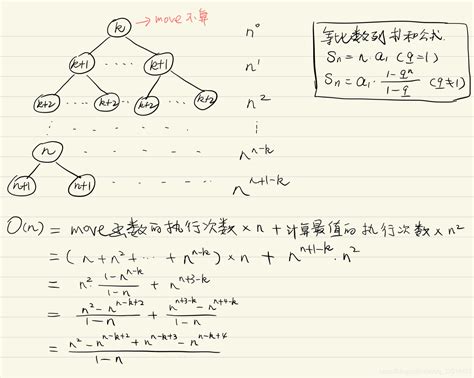 k → move 不算 n⁰
k+1 ····· k+1 n¹
k+2 k+2 k+2 k+2 n²
n - - - - - nⁿ⁻ᵏ
n+1 n+1 - - - - - nⁿ⁺¹⁻ᵏ
等比数列求和公式
Sn = n·a₁ (q=1)
Sn = a₁·(1-qⁿ)/(1-q) (q≠1)
O(n) = move函数的执行次数 × n + 计算最值的执行次数 × n²
= (n + n² + ··· + nⁿ⁻ᵏ) × n + nⁿ⁺¹⁻ᵏ · n²
= n² · (1-nⁿ⁻ᵏ)/(1-n) + nⁿ⁺³⁻ᵏ
= (n² - nⁿ⁻ᵏ⁺²)/(1-n) + (nⁿ⁺³⁻ᵏ - nⁿ⁺⁴⁻ᵏ)/(1-n)
= (n² - nⁿ⁻ᵏ⁺² + nⁿ⁻ᵏ⁺³ - nⁿ⁻ᵏ⁺⁴)/(1-n)